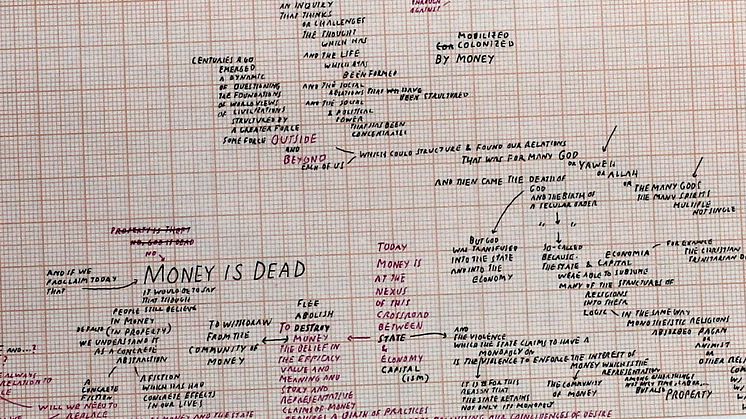 AN INQUIRY
THAT THINKS
OR CHALLENGES
THE THOUGHT
WHICH HAS
AND THE LIFE
WHICH HAS
BEEN FORMED
AND THE SOCIAL
RELATIONS THAT HAVE
BEEN STRUCTURED
AND THE SOCIAL
& POLITICAL
POWER
THAT HAS BEEN
CONCENTRATED
THROUGH
AGAINST
MOBILIZED
COLONIZED
BY MONEY
CENTURIES AGO
EMERGED
A DYNAMIC
OF QUESTIONING
THE FOUNDATIONS
OF WORLDVIEWS
OF CIVILIZATIONS
STRUCTURED BY
A GREATER FORCE
SOME FORCE OUTSIDE
AND
BEYOND
EACH OF US
WHICH COULD STRUCTURE & FOUND OUR RELATIONS
THAT WAS FOR MANY GOD
OR YAWEH
OR ALLAH
OR THE MANY GODS
THE MANY SPIRITS
MULTIPLE
NOT SINGLE
AND THEN CAME THE DEATH OF
GOD
AND THE BIRTH OF
A SECULAR ORDER
BUT GOD
WAS TRANSFUSED
INTO THE STATE
AND INTO THE
ECONOMY
SO-CALLED
BECAUSE
THE STATE & CAPITAL
WERE ABLE TO SUBSUME
MANY OF THE STRUCTURES OF
RELIGIONS
INTO THEIR
LOGIC
IN THE SAME WAY
MONOTHEISTIC RELIGIONS
ABSORBED PAGAN
OR ANIMIST
OR
OTHER RELI
ECONOMIA
FOR EXAMPLE
THE CHRISTIAN
TRINITARIAN
PROPERTY IS THEFT
NO, GOD IS DEAD
NO
AND IF WE
PROCLAIM TODAY
THAT
MONEY IS DEAD
IT WOULD BE TO SAY
THAT THOUGH
PEOPLE STILL BELIEVE
IN MONEY
(IN PROPERTY)
WE UNDERSTAND IT
AS A CONCRETE
ABSTRACTION
A
CONCRETE
FICTION
A FICTION
WHICH HAS HAD
CONCRETE EFFECTS
IN OUR LIVES
AND...?
WILL WE NEED TO
REPLACE
TO WITHDRAW
FROM THE
COMMUNITY OF
MONEY
FLEE
ABOLISH
TO DESTROY
MONEY
THE BELIEF IN
THE EFFICACY
VALUE AND
MEANING AND
STORY AND
REPRESENTATIVE
CLAIMS OF MONEY
TODAY
MONEY IS
AT THE
NEXUS
OF THIS
CROSSROAD
BETWEEN
STATE
&
ECONOMY
CAPITAL
(ISM)
AND
THE VIOLENCE
WHICH THE STATE CLAIMS TO HAVE A
MONOPOLY ON
IS THE VIOLENCE TO ENFORCE THE INTEREST OF
MONEY WHICH IS THE
REPRESENTATION
IT IS FOR THIS
REASON THAT
THE STATE RETAINS
NOT ONLY ITS MONOPOLY
THE COMMUNITY
OF MONEY
AMONG OTHER THINGS
NOT ONLY TIME, LABOR,
BUT ALSO
PROPERTY
MONEY AND THE STATE
A CHAIN OF PRACTICES
OF DESIRE